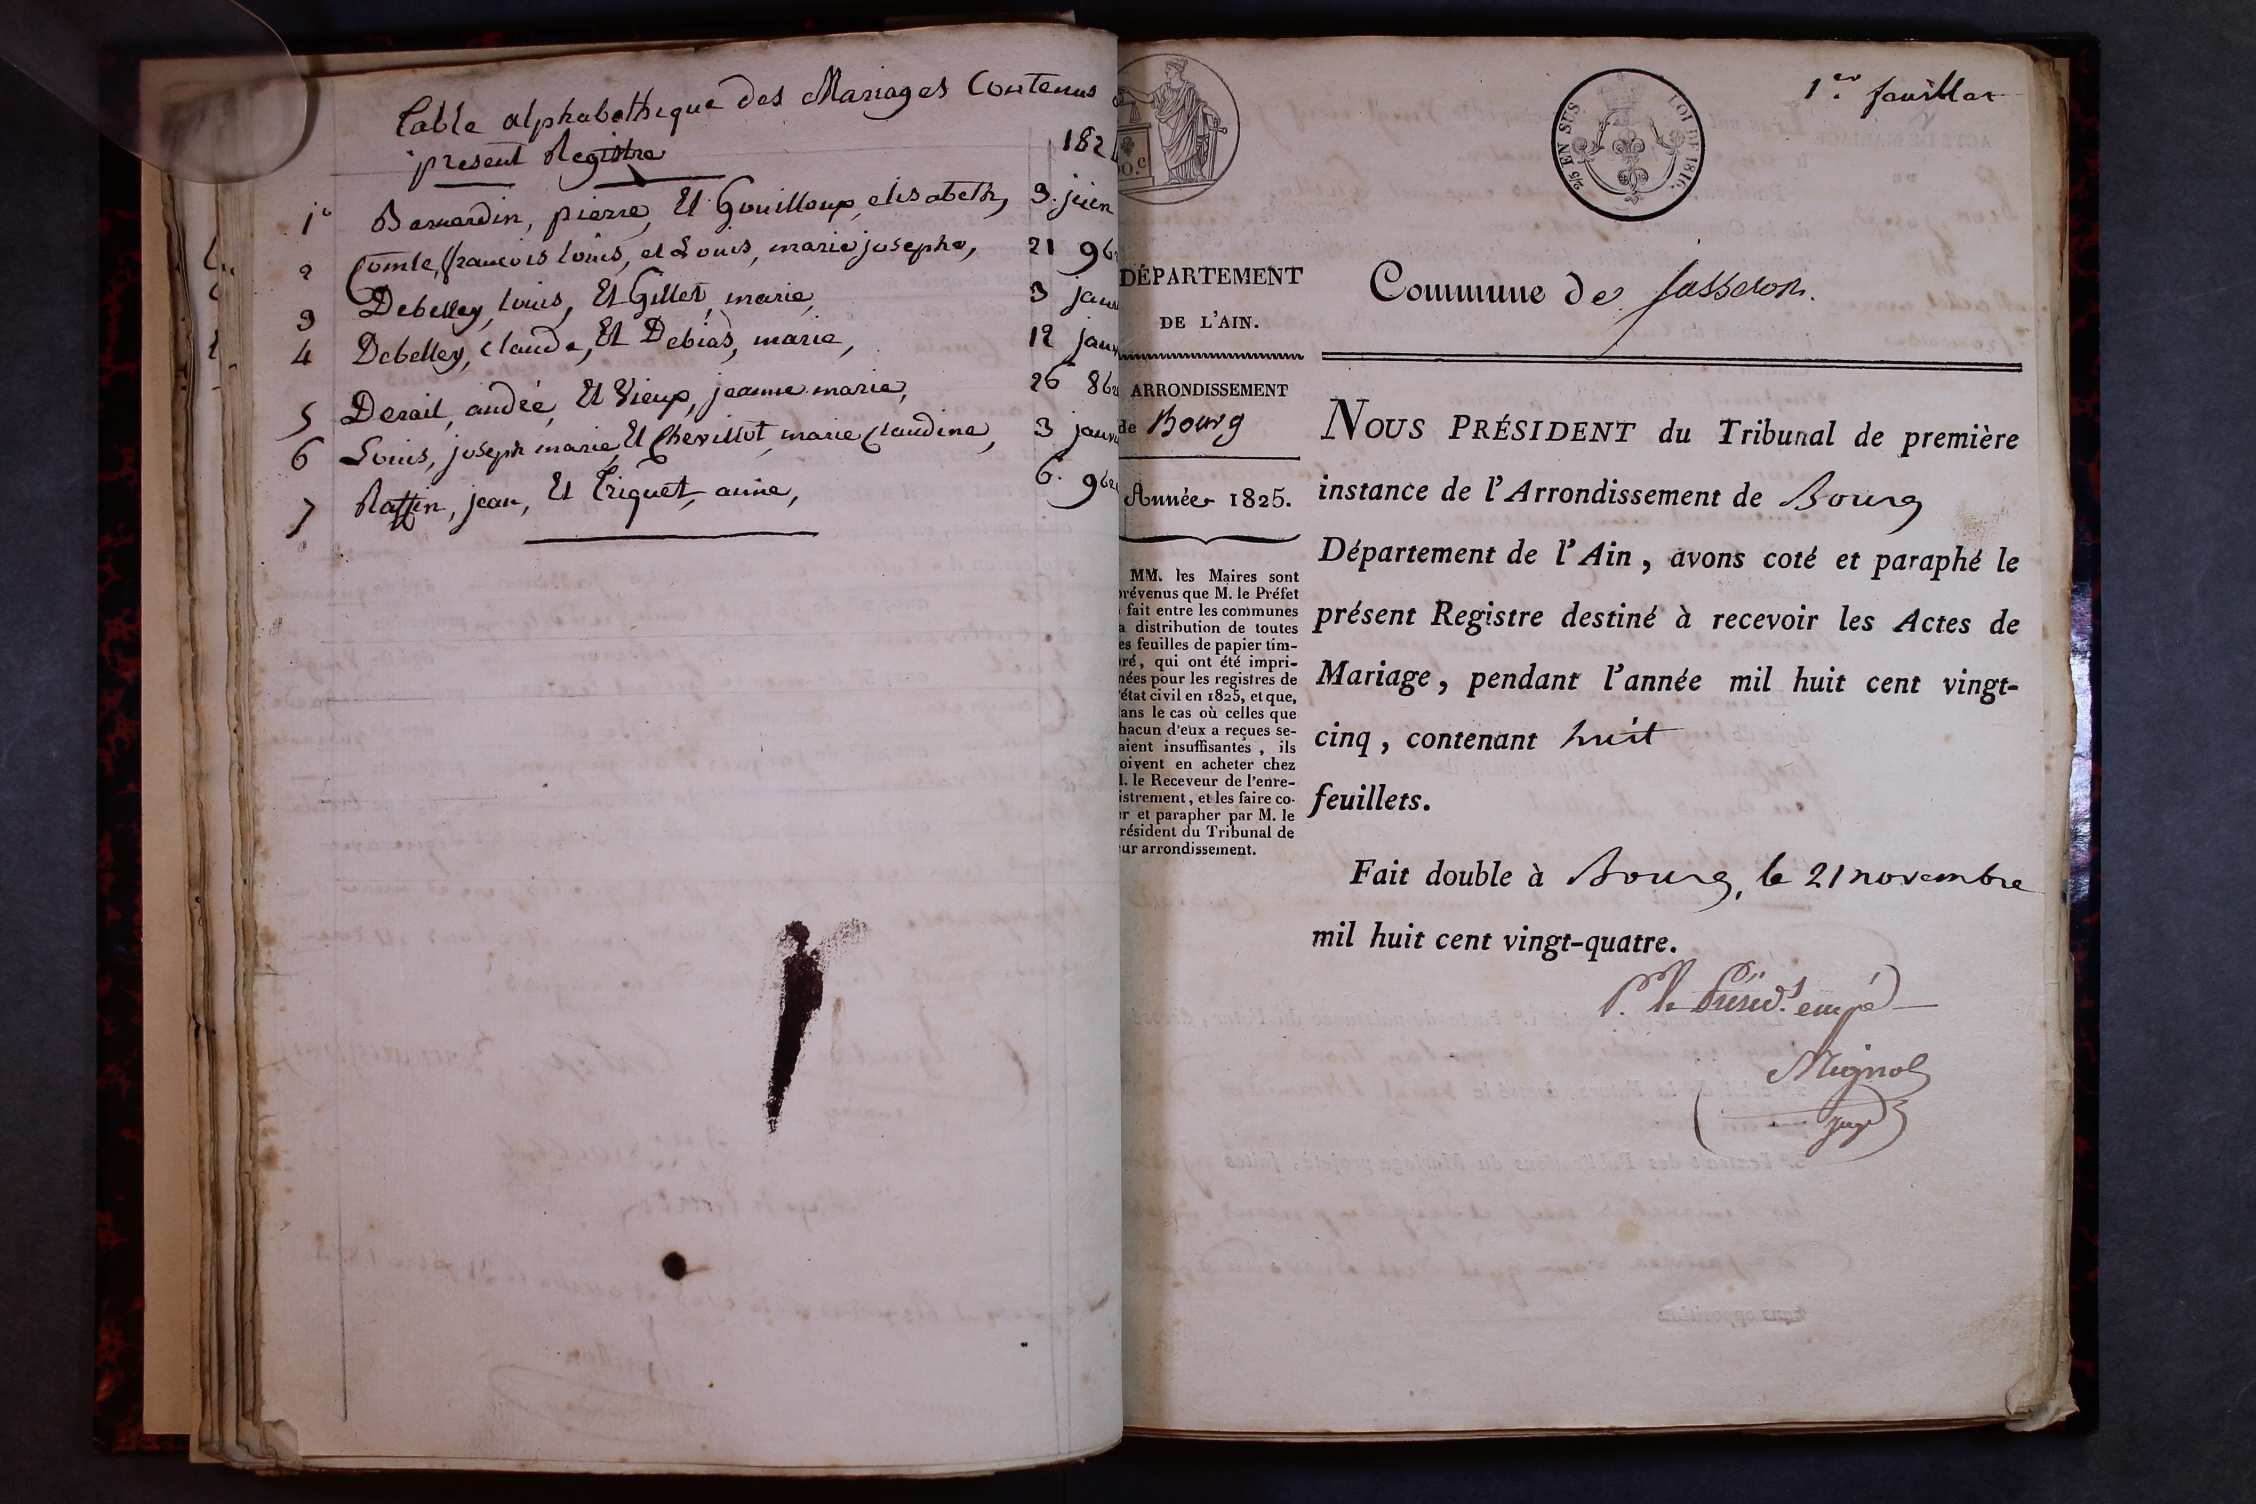 Table alphabethique des Mariages Contenus
present Registre
182
1° Bernardin, pierre, Et Gouilloux, elisabeth, 3. juin
2 Comte, françois louis, et Louis, marie josephe, 21 9b
3 Debelley, louis, Et Gillet, marie, 3 janv
4 Debelley, claude, Et Debias, marie, 12 janv
5 Derail, andré, Et Vieux, jeanne marie, 26 8b
6 Louis, joseph marie, Et Chevillot, marie Claudine, 3 janv
7 Raffin, jean, Et Triquet, anne, 6. 9b
1er feuillet
2/5 EN SUS
LOI DE 1816.
DÉPARTEMENT
DE L'AIN.
ARRONDISSEMENT
de Bourg
Année 1825.
MM. les Maires sont
prévenus que M. le Préfet
fait entre les communes
a distribution de toutes
es feuilles de papier tim-
bré, qui ont été impri-
mées pour les registres de
l'état civil en 1825, et que,
dans le cas où celles que
chacun d'eux a reçues se-
raient insuffisantes, ils
doivent en acheter chez
M. le Receveur de l'enre-
gistrement, et les faire co-
er et parapher par M. le
Président du Tribunal de
eur arrondissement.
Commune de Jasseron.
NOUS PRÉSIDENT du Tribunal de première
instance de l'Arrondissement de Bourg
Département de l'Ain, avons coté et paraphé le
présent Registre destiné à recevoir les Actes de
Mariage, pendant l'année mil huit cent vingt-
cinq, contenant huit
feuillets.
Fait double à Bourg, le 21 novembre
mil huit cent vingt-quatre.
P. le Présidt. empé
Mignol
juge